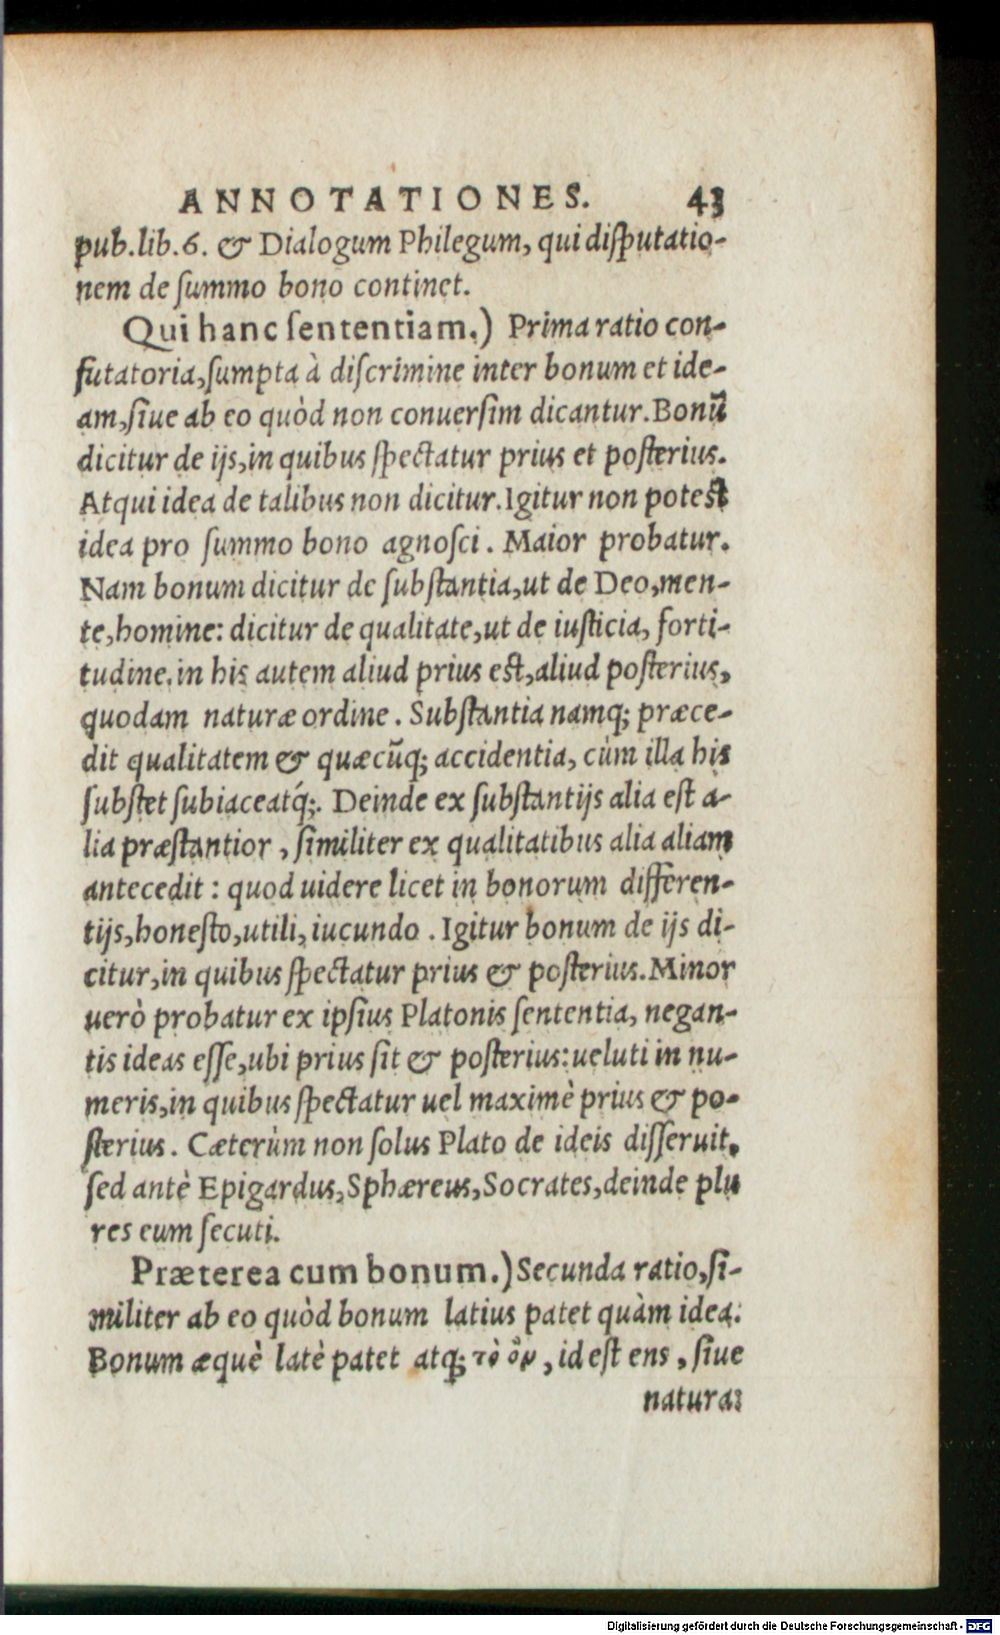 ANNOTATIONES. 43
pub.lib.6. & Dialogum Philegum, qui diſputatio-
nem de ſummo bono continet.
Qui hanc ſententiam.) Prima ratio con-
futatoria,ſumpta à diſcrimine inter bonum et ide-
am,ſiue ab eo quòd non conuerſim dicantur.Bonũ
dicitur de ijs,in quibus ſpectatur prius et poſterius.
Atqui idea de talibus non dicitur.Igitur non poteſt
idea pro ſummo bono agnoſci. Maior probatur.
Nam bonum dicitur de ſubſtantia,ut de Deo,men-
te,homine: dicitur de qualitate,ut de iuſticia, forti-
tudine.in his autem aliud prius eſt,aliud poſterius,
quodam naturæ ordine. Subſtantia namq; præce-
dit qualitatem & quæcũq; accidentia, cùm illa his
ſubſtet ſubiaceatq́;. Deinde ex ſubſtantijs alia eſt a-
lia præſtantior, ſimiliter ex qualitatibus alia aliam
antecedit: quod uidere licet in bonorum differen-
tijs,honeſto,utili, iucundo. Igitur bonum de ijs di-
citur,in quibus ſpectatur prius & poſterius.Minor
uerò probatur ex ipſius Platonis ſententia, negan-
tis ideas eſſe,ubi prius ſit & poſterius:ueluti in nu-
meris,in quibus ſpectatur uel maximè prius & po-
ſterius. Cæterùm non ſolus Plato de ideis diſſeruit,
ſed antè Epigardus,Sphæreus,Socrates,deinde plu
res eum ſecuti.
Præterea cum bonum.)Secunda ratio,ſi-
militer ab eo quòd bonum latius patet quàm idea:
Bonum æquè latè patet atq; τὸ ὂν, id eſt ens, ſiue
natura:
Digitalisierung gefördert durch die Deutsche Forschungsgemeinschaft - DFG